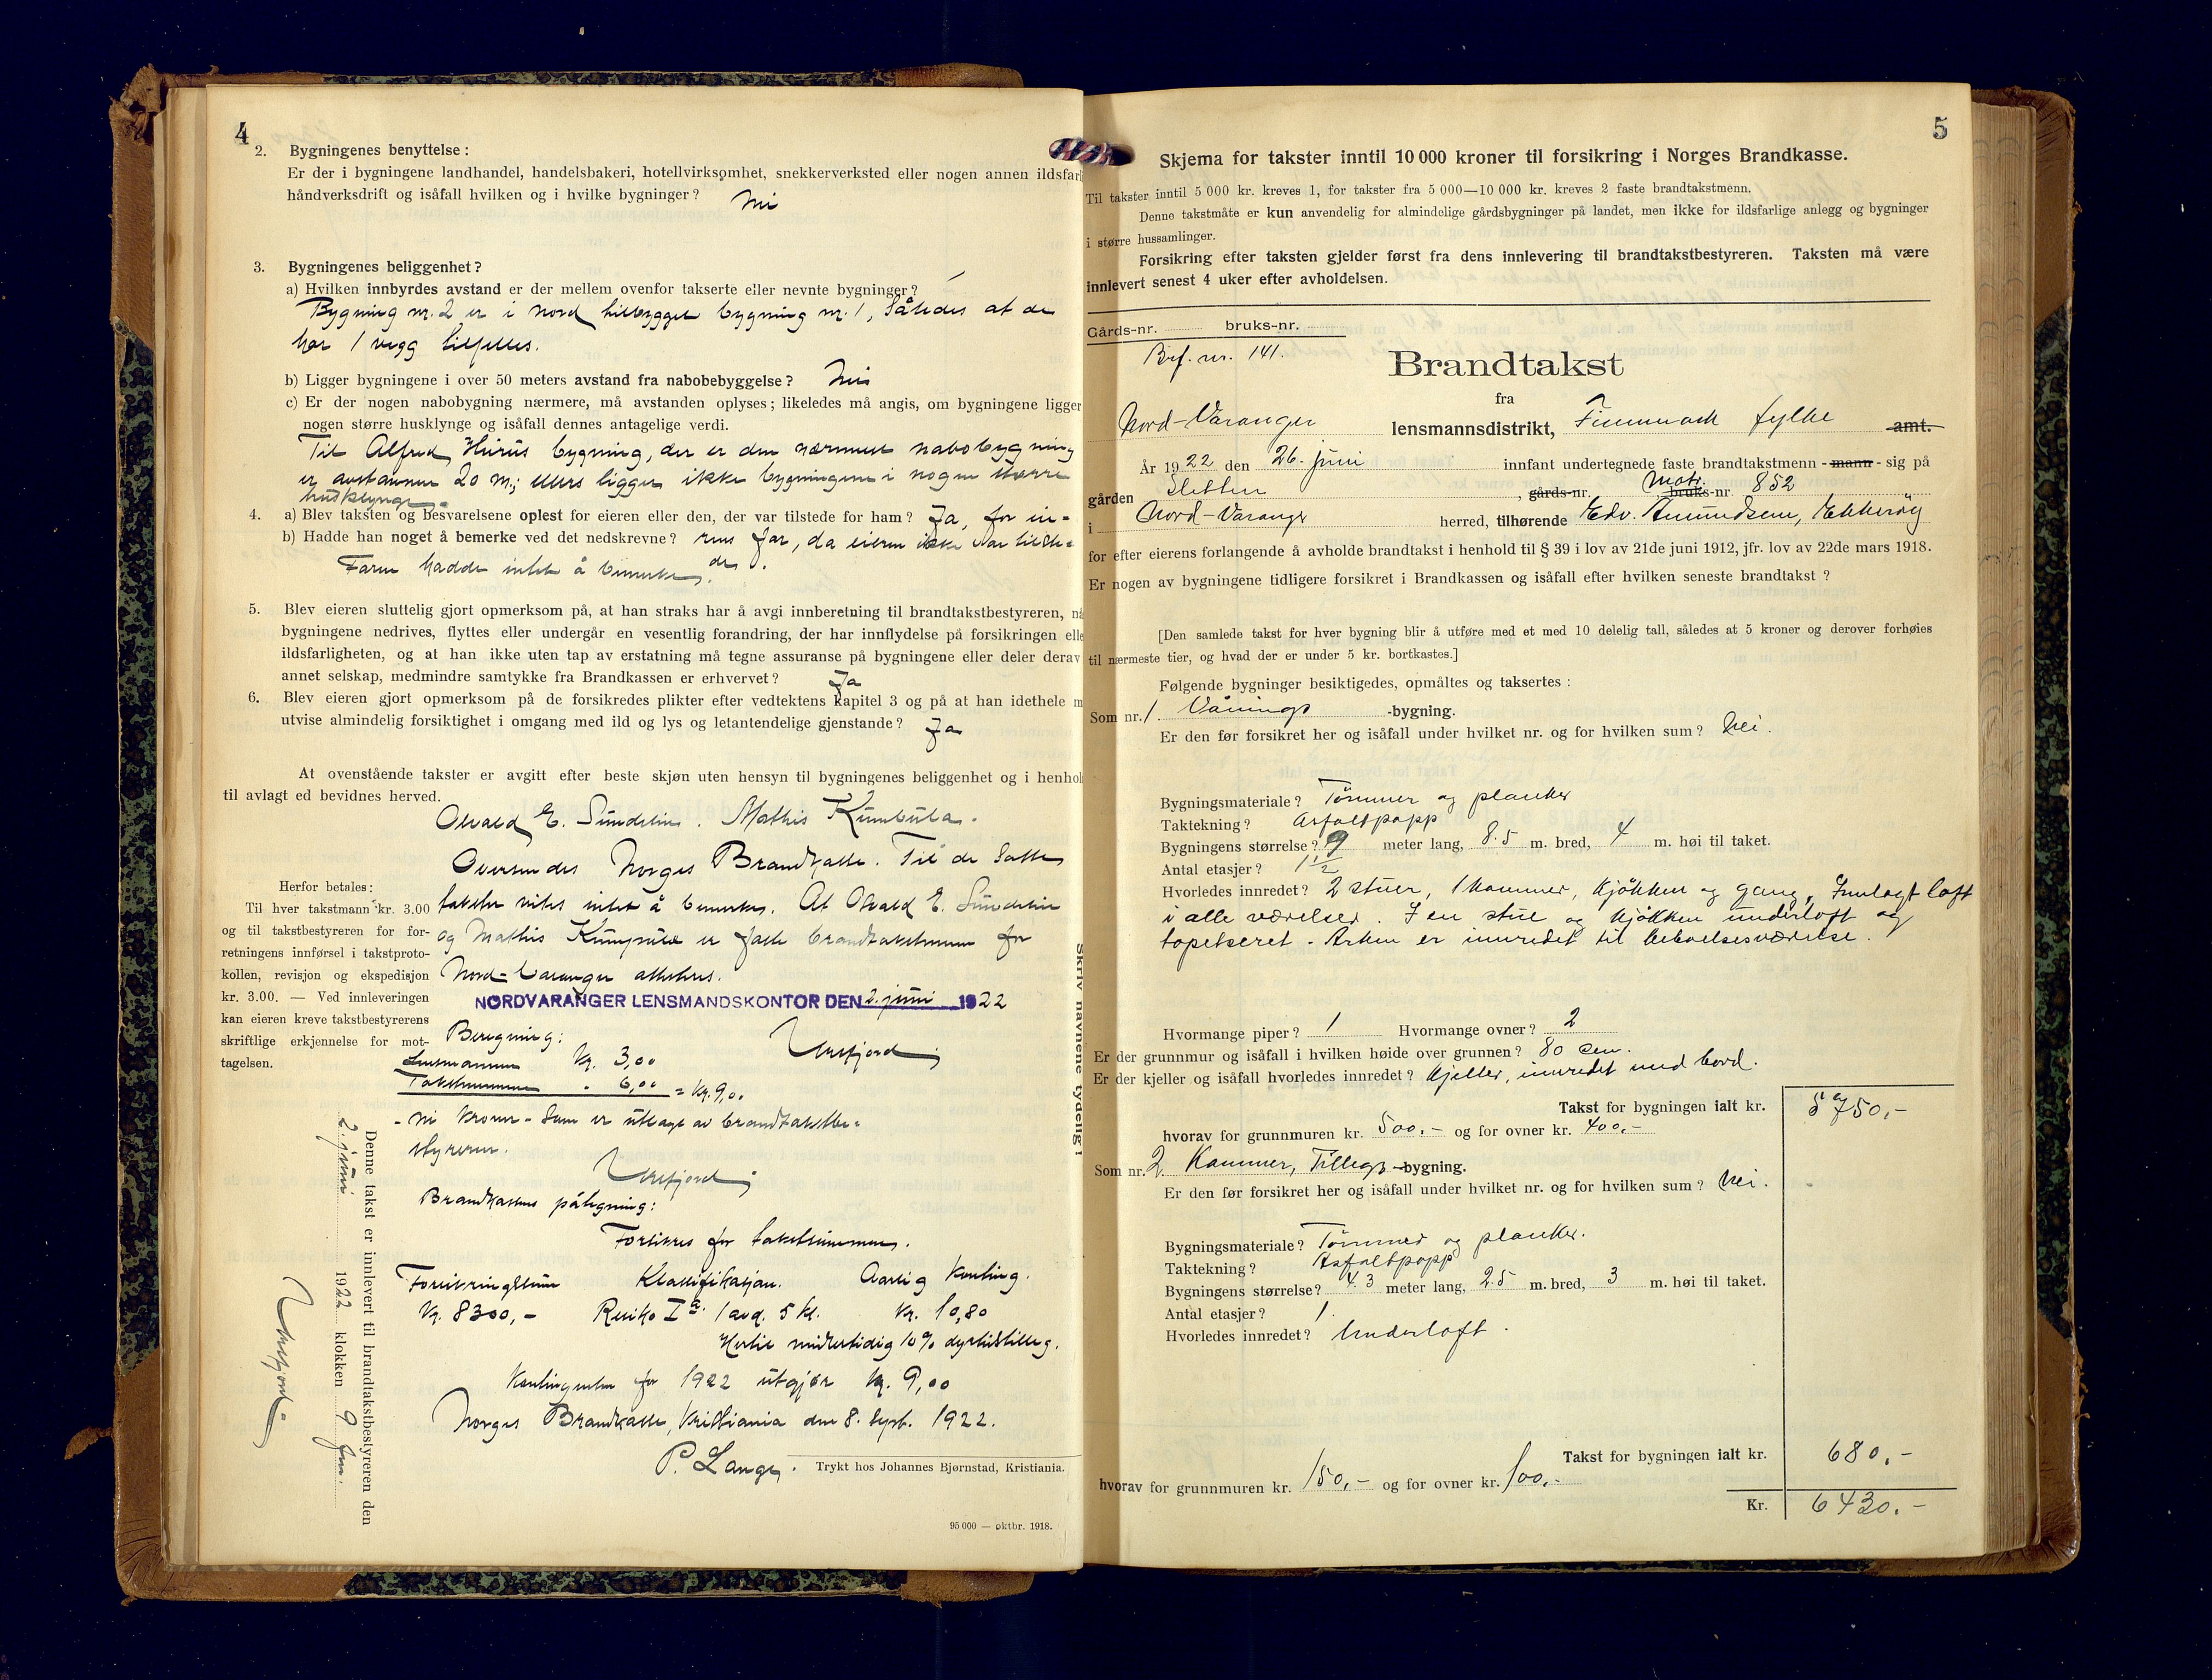 4
2. Bygningenes benyttelse:
Er der i bygningene landhandel, handelsbakeri, hotellvirksomhet, snekkerverksted eller nogen annen ildsfarl
håndverksdrift og isåfall hvilken og i hvilke bygninger? Nei
3. Bygningenes beliggenhet?
a) Hvilken innbyrdes avstand er der mellem ovenfor takserte eller nevnte bygninger?
Bygning nr. 2 er i nord tilbygget bygning nr. 1, således at de
har 1 vegg tilfelles.
b) Ligger bygningene i over 50 meters avstand fra nabobebyggelse? Nei
c) Er der nogen nabobygning nærmere, må avstanden oplyses; likeledes må angis, om bygningene ligger
nogen større husklynge og isåfall dennes antagelige verdi.
Til Alfred bygning, der er den nærmeste nabobygning
er avstannen 20 m.; ellers ligger ikke bygningene i nogen større
husklynge.
4. a) Blev taksten og besvarelsene oplest for eieren eller den, der var tilstede for ham? Ja, for ei-
b) Hadde han noget å bemerke ved det nedskrevne? rens far, da eieren ikke var tilste-
Faren hadde intet å bemerke. de.
5. Blev eieren sluttelig gjort opmerksom på, at han straks har å avgi innberetning til brandtakstbestyreren, nå
bygningene nedrives, flyttes eller undergår en vesentlig forandring, der har innflydelse på forsikringen elle
ildsfarligheten, og at han ikke uten tap av erstatning må tegne assuranse på bygningene eller deler derav
annet selskap, medmindre samtykke fra Brandkassen er erhvervet? Ja
6. Blev eieren gjort opmerksom på de forsikredes plikter efter vedtektens kapitel 3 og på at han idethele m
utvise almindelig forsiktighet i omgang med ild og lys og letantendelige gjenstande? Ja
At ovenstående takster er avgitt efter beste skjøn uten hensyn til bygningenes beliggenhet og i henhol
til avlagt ed bevidnes herved.
Osvald E. Sundelin. Mathis
Oversendes Norges Brandkasse. Til de satte
takster vites intet å bemerke. At Osvald E. Sundelin
og Mathis er faste brandtakstmenn for
Nord-Varanger attesteres.
NORDVARANGER LENSMANDSKONTOR DEN 2. juni 1922
Herfor betales:
Til hver takstmann kr. 3.00
og til takstbestyreren for for-
retningens innførsel i takstproto-
kollen, revisjon og ekspedisjon
kr. 3.00. — Ved innleveringen
kan eieren kreve takstbestyrerens
skriftlige erkjennelse for mot-
tagelsen.
Beregning:
Lensmannen Kr. 3,00
Takstmennene " 6,00 = Kr. 9,00
- ni kroner - som er utlagt av brandtakstbe-
styreren.
Brandkassens påtegning:
Forsikres for takstsummen.
Forsikringssum Klassifikasjon. Aarlig Konting.
Kr. 8300,- Risiko Ia. 1 avd. 5 kl. Kr. 10,80
Hertil midlertidig 10% dyrtidstillegg.
Kontingenten for 1922 utgjør Kr. 9,00
Norges Brandkasse, Kristiania den 8. Sept. 1922.
P. Lange.
Trykt hos Johannes Bjørnstad, Kristiania.
95 000 — oktbr. 1918.
Denne takst er innlevert til brandtakstbestyreren den
2. juni 1922 klokken 9 fm.
Skriv navnene tydelig!
5
Skjema for takster inntil 10 000 kroner til forsikring i Norges Brandkasse.
Til takster inntil 5 000 kr. kreves 1, for takster fra 5 000—10 000 kr. kreves 2 faste brandtakstmenn.
Denne takstmåte er kun anvendelig for almindelige gårdsbygninger på landet, men ikke for ildsfarlige anlegg og bygninger
i større hussamlinger.
Forsikring efter taksten gjelder først fra dens innlevering til brandtakstbestyreren. Taksten må være
innlevert senest 4 uker efter avholdelsen.
Gårds-nr. bruks-nr.
Brf. nr. 141.
Brandtakst
fra
Nord-Varanger lensmannsdistrikt, Finnmark fylke amt.
År 1922 den 26. juni innfant undertegnede faste brandtakstmenn - mann - sig på
gården Sletten , gårds-nr. Matr. bruks-nr. 852
i Nord-Varanger herred, tilhørende Edv. Amundsen, Ekkerøy
for efter eierens forlangende å avholde brandtakst i henhold til § 39 i lov av 21de juni 1912, jfr. lov av 22de mars 1918.
Er nogen av bygningene tidligere forsikret i Brandkassen og isåfall efter hvilken seneste brandtakst?
[Den samlede takst for hver bygning blir å utføre med et med 10 delelig tall, således at 5 kroner og derover forhøies
til nærmeste tier, og hvad der er under 5 kr. bortkastes.]
Følgende bygninger besiktigedes, opmåltes og taksertes:
Som nr. 1. Vånings -bygning.
Er den før forsikret her og isåfall under hvilket nr. og for hvilken sum? Nei.
Bygningsmateriale? Tømmer og planker
Taktekning? Asfaltpapp
Bygningens størrelse? 9 meter lang, 8.5 m. bred, 4 m. høi til taket.
Antal etasjer? 1 1/2
Hvorledes innredet? 2 stuer, 1 kammer, kjøkken og gang, Innlagt loft
i alle værelser. I en stue og kjøkken underloft og
tapetseret. Arken er innredet til beboelsesværelse.
Hvormange piper? 1 Hvormange ovner? 2
Er der grunnmur og isåfall i hvilken høide over grunnen? 80 cm.
Er der kjeller og isåfall hvorledes innredet? Kjeller, innredet med bord.
Takst for bygningen ialt kr. 5750,-
hvorav for grunnmuren kr. 500.- og for ovner kr. 400.-
Som nr. 2. Kammer, Tilleggs-bygning.
Er den før forsikret her og isåfall under hvilket nr. og for hvilken sum? Nei.
Bygningsmateriale? Tømmer og planker.
Taktekning? Asfaltpapp
Bygningens størrelse? 4.3 meter lang, 2.5 m. bred, 3 m. høi til taket.
Antal etasjer? 1.
Hvorledes innredet? Underloft.
Takst for bygningen ialt kr. 680.-
hvorav for grunnmuren kr. 150,- og for ovner kr. 100.-
Kr. 6430.-